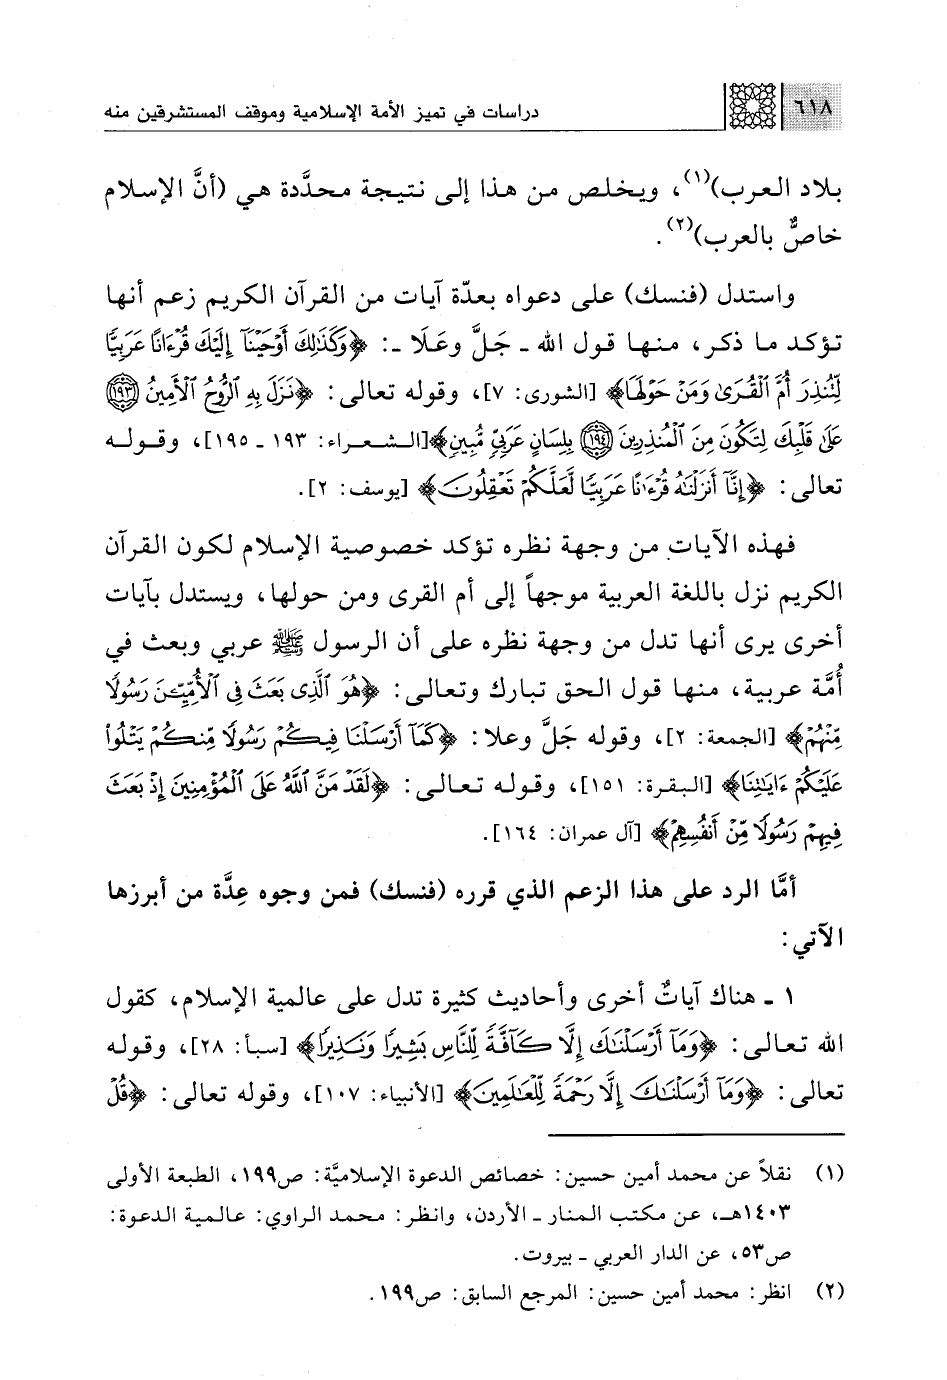 ٦١٨
دراسات في تميز الأمة الإسلامية وموقف المستشرقين منه
بلاد العرب)(١)، ويخلص من هذا إلى نتيجة محدَّدة هي (أنَّ الإسلام
خاصٌّ بالعرب)(٢).
واستدل (فنسك) على دعواه بعدّة آيات من القرآن الكريم زعم أنها
تؤكد ما ذكر، منها قول الله ـ جَلَّ وعَلَا ـ: ﴿وَكَذَٰلِكَ أَوْحَيْنَآ إِلَيْكَ قُرْءَانًا عَرَبِيًّا
لِّتُنذِرَ أُمَّ ٱلْقُرَىٰ وَمَنْ حَوْلَهَا﴾ [الشورى: ٧]، وقوله تعالى: ﴿نَزَلَ بِهِ ٱلرُّوحُ ٱلْأَمِينُ ١٩٣
عَلَىٰ قَلْبِكَ لِتَكُونَ مِنَ ٱلْمُنذِرِينَ ١٩٤ بِلِسَانٍ عَرَبِيٍّ مُّبِينٍ﴾[الشعراء: ١٩٣ ـ ١٩٥]، وقوله
تعالى: ﴿إِنَّآ أَنزَلْنَٰهُ قُرْءَٰنًا عَرَبِيًّا لَّعَلَّكُمْ تَعْقِلُونَ﴾ [يوسف: ٢].
فهذه الآيات من وجهة نظره تؤكد خصوصية الإسلام لكون القرآن
الكريم نزل باللغة العربية موجهاً إلى أم القرى ومن حولها، ويستدل بآيات
أخرى يرى أنها تدل من وجهة نظره على أن الرسول ﷺ عربي وبعث في
أُمَّة عربية، منها قول الحق تبارك وتعالى: ﴿هُوَ ٱلَّذِى بَعَثَ فِى ٱلْأُمِّيِّـۧنَ رَسُولًا
مِّنْهُمْ﴾ [الجمعة: ٢]، وقوله جَلَّ وعلا: ﴿كَمَآ أَرْسَلْنَا فِيكُمْ رَسُولًا مِّنكُمْ يَتْلُوا۟
عَلَيْكُمْ ءَايَٰتِنَا﴾ [البقرة: ١٥١]، وقوله تعالى: ﴿لَقَدْ مَنَّ ٱللَّهُ عَلَى ٱلْمُؤْمِنِينَ إِذْ بَعَثَ
فِيهِمْ رَسُولًا مِّنْ أَنفُسِهِمْ﴾ [آل عمران: ١٦٤].
أمَّا الرد على هذا الزعم الذي قرره (فنسك) فمن وجوه عِدَّة من أبرزها
الآتي:
١ ـ هناك آياتٌ أخرى وأحاديث كثيرة تدل على عالمية الإسلام، كقول
الله تعالى: ﴿وَمَآ أَرْسَلْنَٰكَ إِلَّا كَآفَّةً لِّلنَّاسِ بَشِيرًا وَنَذِيرًا﴾ [سبأ: ٢٨]، وقوله
تعالى: ﴿وَمَآ أَرْسَلْنَٰكَ إِلَّا رَحْمَةً لِّلْعَٰلَمِينَ﴾ [الأنبياء: ١٠٧]، وقوله تعالى: ﴿قُلْ
(١) نقلاً عن محمد أمين حسين: خصائص الدعوة الإسلاميَّة: ص١٩٩، الطبعة الأولى
١٤٠٣هـ، عن مكتب المنار ـ الأردن، وانظر: محمد الراوي: عالمية الدعوة:
ص٥٣، عن الدار العربي ـ بيروت.
(٢) انظر: محمد أمين حسين: المرجع السابق: ص١٩٩.